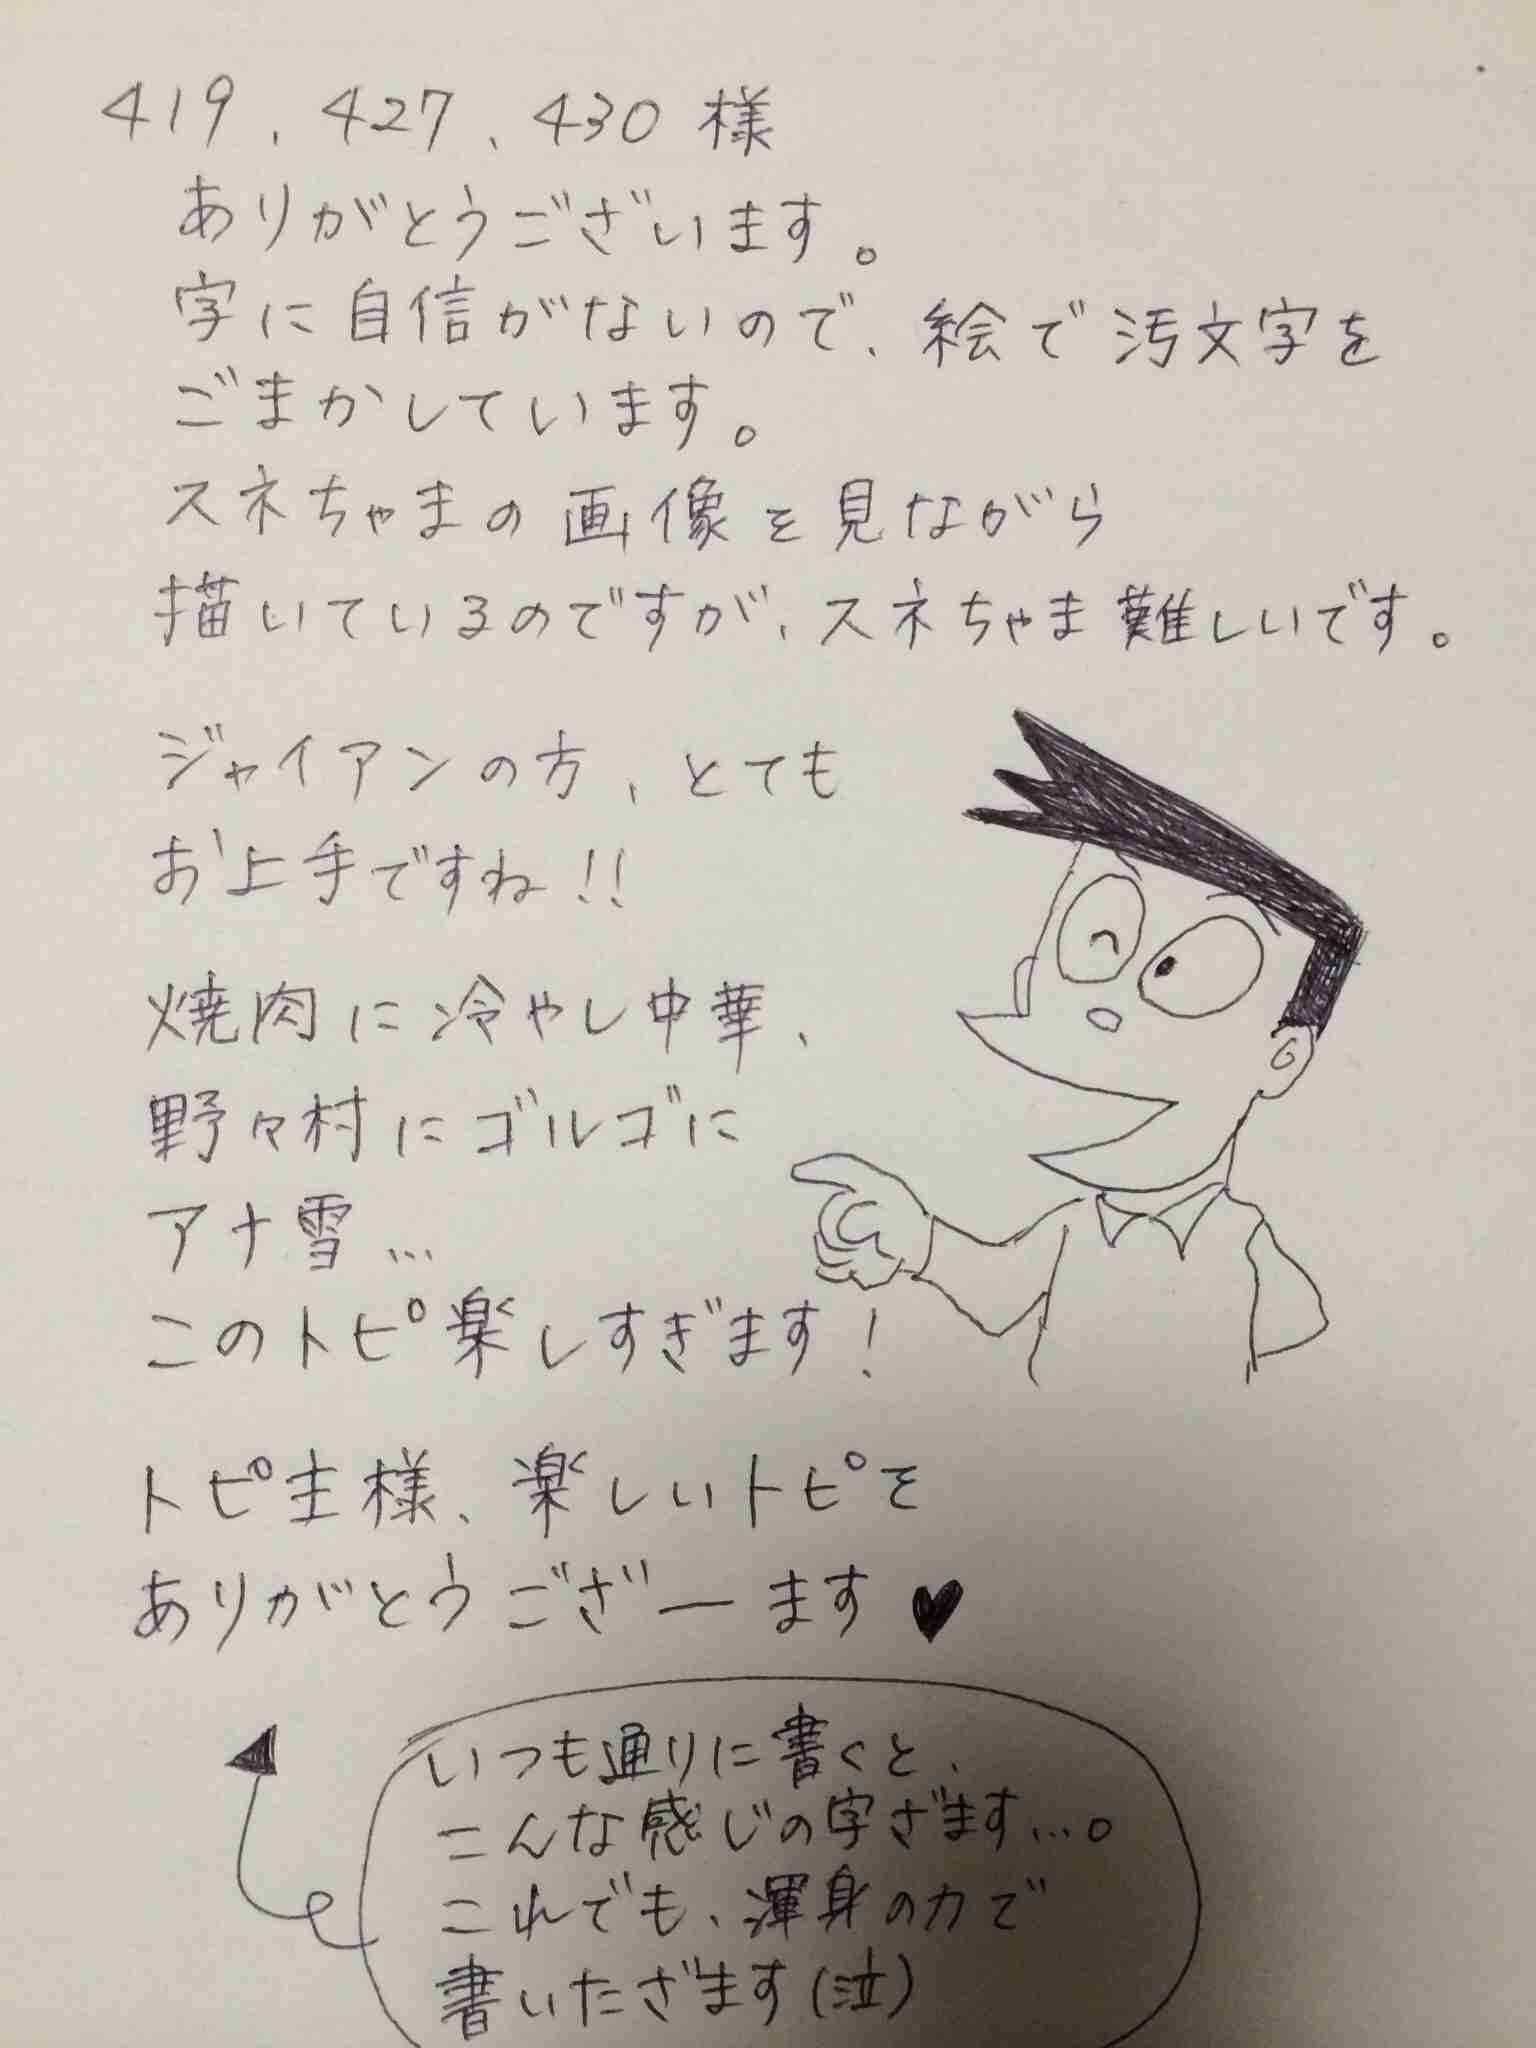 419、427、430 様
ありがとうございます。
字に自信がないので、絵で汚文字を
ごまかしています。
スネちゃまの画像を見ながら
描いているのですが、スネちゃま難しいです。
ジャイアンの方、とても
お上手ですね!!
焼肉に冷やし中華、
野々村にゴルゴに
アナ雪…
このトピ楽しすぎます!
トピ主様、楽しいトピを
ありがとうございーます♥
いつも通りに書くと、
こんな感じの字ざます…。
これでも、渾身の力で
書いたざます(泣)